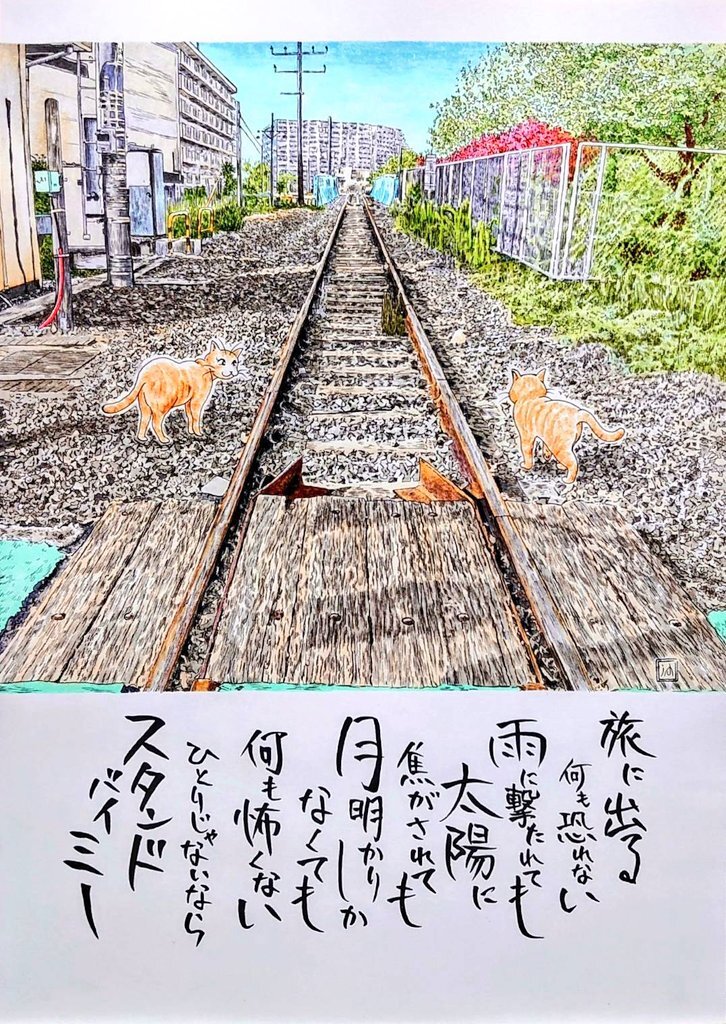 旅に出る
何も恐れない
雨に撃たれても
太陽に
焦がされても
月明かりしか
なくても
何も怖くない
ひとりじゃないなら
スタンド
バイミー